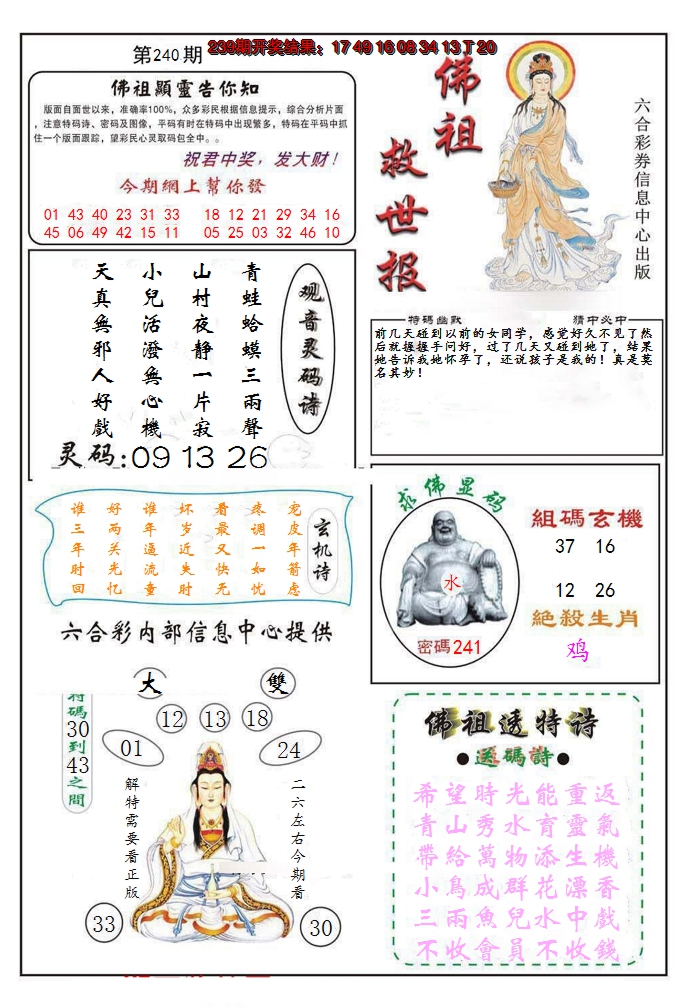 第240期
239期开奖结果：17 49 16 08 34 13丁20
佛祖顯靈告你知
版面自面世以来，准确率100%，众多彩民根据信息提示，综合分析片面
，注意特码诗、密码及图像，平码有时在特码中出现繁多，特码在平码中抓
住一个版面跟踪，望彩民心灵取码包全中。。
祝君中奖，发大财！
今期網上幫你發
01 43 40 23 31 33 18 12 21 29 34 16
45 06 49 42 15 11 05 25 03 32 46 10
佛祖
救世报
六合彩券信息中心出版
青蛙蛤蟆三兩聲
山村夜静一片寂
小兒活潑無心機
天真無邪人好戲
观音灵码诗
灵码:09 13 26
特碼幽默
猜中必中
前几天碰到以前的女同学，感觉好久不见了然
后就握握手问好，过了几天又碰到她了，结果
她告诉我她怀孕了，还说孩子是我的！真是莫
名其妙！
玄机诗
龙皮年箭虑
恭调一如忧
看最又快无
坏岁近失时
谁年逼流童
好两关光忆
谁三年时回
六合彩内部信息中心提供
求佛显码
水
密碼241
組碼玄機
37 16
12 26
絕殺生肖
鸡
大
雙
特碼30到43之間
12 13 18
01
24
解特需要看正版
二六左右今期看
33
30
佛祖透特诗
●送碼詩●
希望時光能重返
青山秀水育靈氣
帶給萬物添生機
小鳥成群花漂香
三兩魚兒水中戲
不收會員不收錢